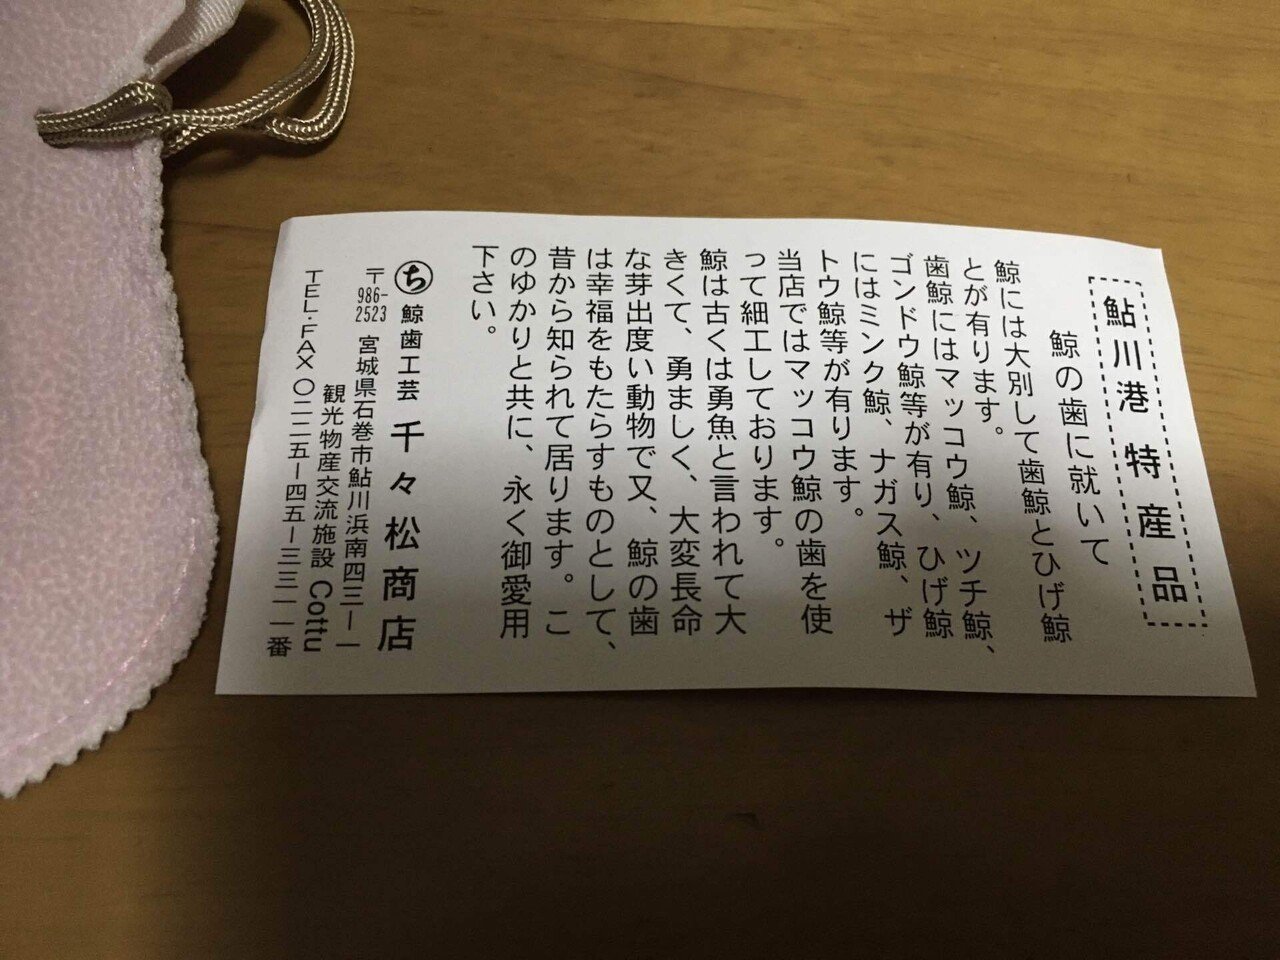 鮎川港 特産品
鯨の歯に就いて
鯨には大別して歯鯨とひげ鯨
とが有ります。
歯鯨にはマッコウ鯨、ツチ鯨、
ゴンドウ鯨等が有り、ひげ鯨
にはミンク鯨、ナガス鯨、ザ
トウ鯨等が有ります。
当店ではマッコウ鯨の歯を使
って細工しております。
鯨は古くは勇魚と言われて大
きくて、勇ましく、大変長命
な芽出度い動物で又、鯨の歯
は幸福をもたらすものとして、
昔から知られて居ります。こ
のゆかりと共に、永く御愛用
下さい。
ち 鯨歯工芸 千々松商店
〒986-2523 宮城県石巻市鮎川浜南四三ー一
観光物産交流施設 Cottu
TEL・FAX 〇二二五ー四五ー三三一一番